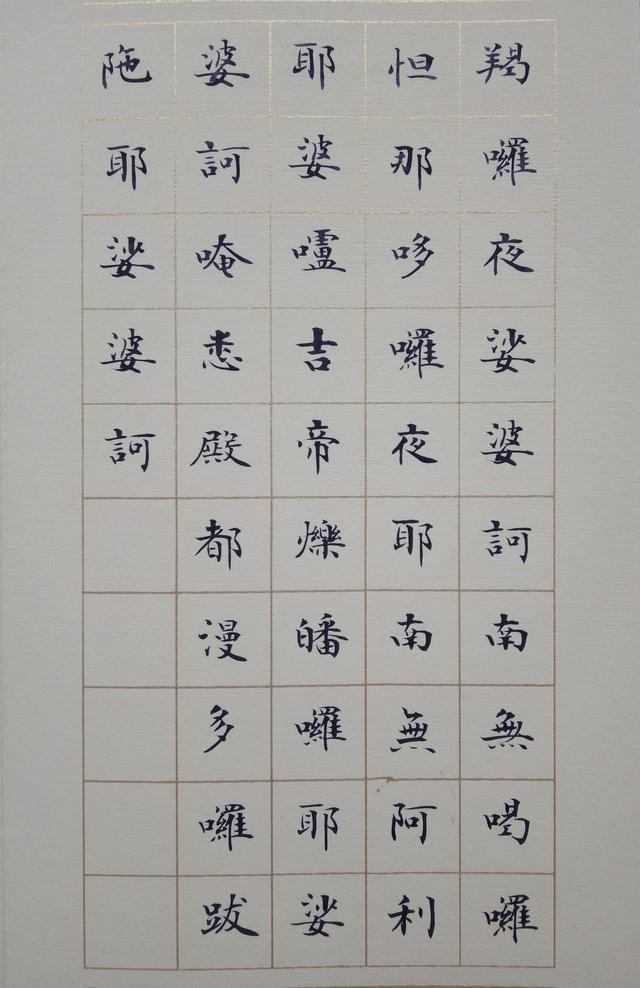 羯囉夜娑婆訶南無喝囉
怛那哆囉夜耶南無阿利
耶婆嚧吉帝爍皤囉耶娑
婆訶唵悉殿都漫多囉跋
陁耶娑婆訶